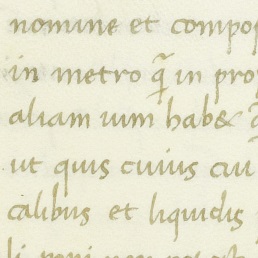 nomine et compo
in metro q̃ in pro
aliam uim hab&
ut quis cuius cui
calibus et liquidis